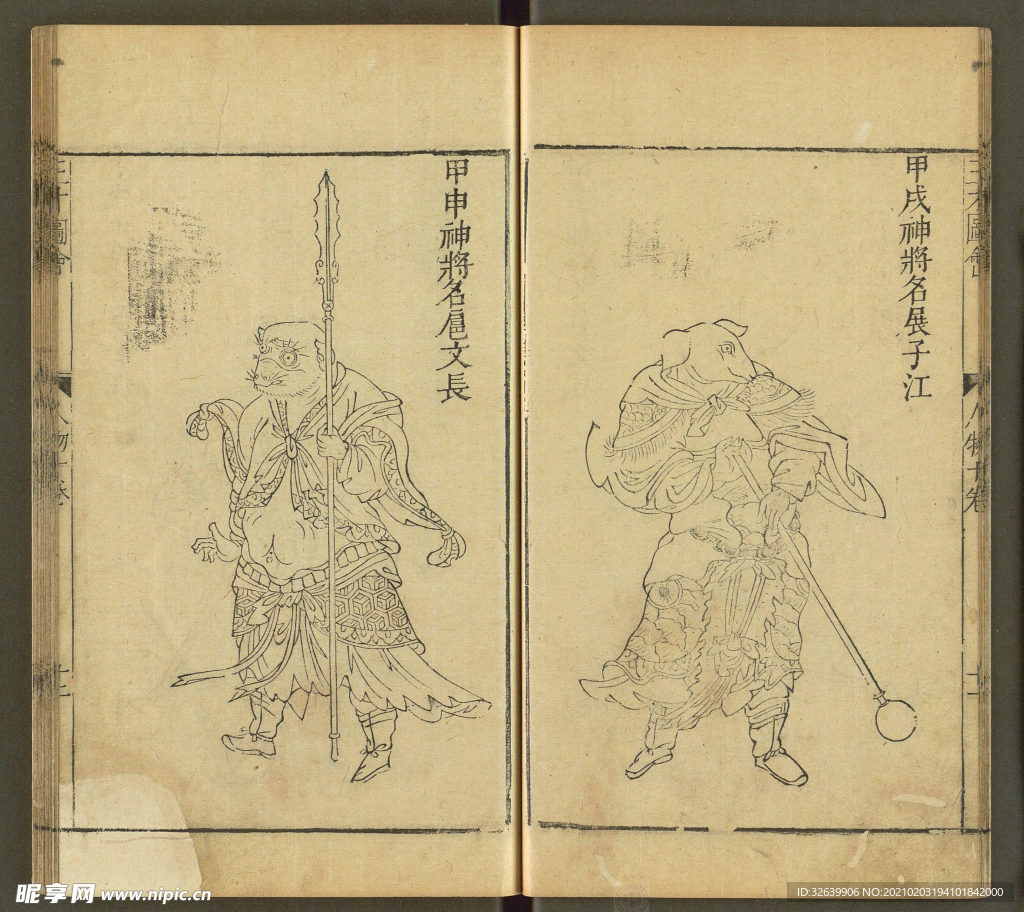 甲戌神將名展子江
甲申神將名扈文長
三才圖會
人物十卷
十二
三才圖會
昵享网 www.nipic.cn
ID:32639906 NO:20210203194101842000